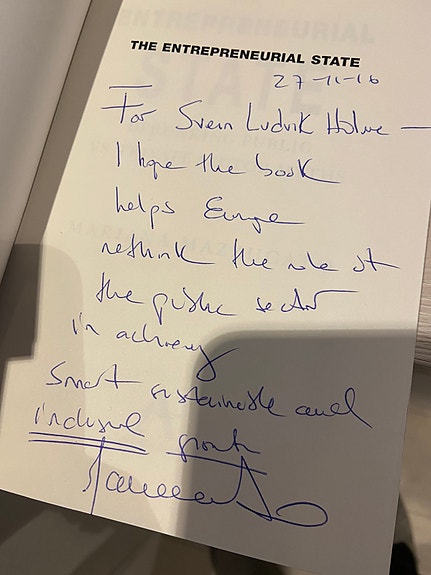 THE ENTREPRENEURIAL STATE
27-11-16
For Svein Ludvik
I hope the book
helps Europe
rethink the role of
the public sector
in achieving
smart sustainable and
inclusive growth